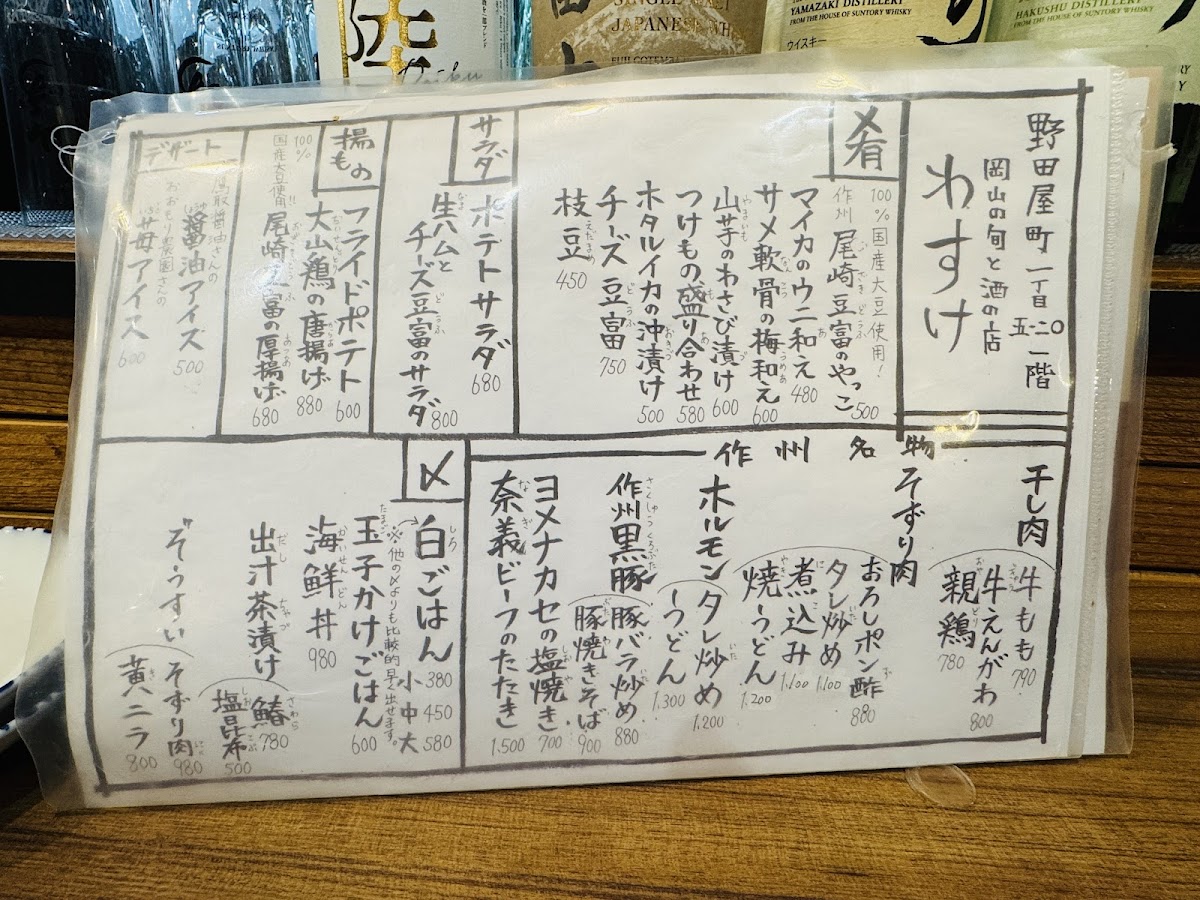 陸
SINGLE MALT
JAPANESE WH
YAMAZAKI DISTILLERY
FROM THE HOUSE OF SUNTORY WHISKY
ウイスキー
HAKUSHU DISTILLERY
FROM THE HOUSE OF SUNTORY WHISKY
野田屋町一丁目
五-二〇 一階
岡山の旬と酒の店
わすけ
肴
100%国産大豆使用!
作州 尾崎豆富のやっこ 500
マイカのウニ和え 480
サメ軟骨の梅和え 600
山芋のわさび漬け 600
つけもの盛り合わせ 580
ホタルイカの沖漬け 500
チーズ豆富 750
枝豆 450
サラダ
ポテトサラダ 680
生ハムと
チーズ豆富のサラダ 800
揚もの
フライドポテト 600
大山鶏の唐揚げ 880
100%
国産大豆使用!!
尾崎豆富の厚揚げ 680
デザート
鳥取醤油さんの
醤油アイス 500
おおもり農園さんの
苺アイス 600
作州名物
干し肉
牛もも 790
牛えんがわ 800
親鶏 780
そずり肉
おろしポン酢 880
タレ炒め 1.100
煮込み 1.100
焼うどん 1.200
ホルモン
タレ炒め 1.200
うどん 1.300
作州黒豚
豚バラ炒め 880
豚焼きそば 900
ヨメナカセの塩焼き 700
奈義ビーフのたたき 1.500
〆
白ごはん 小380 中450 大580
※他の〆よりも比較的早く出せます。
玉子かけごはん 600
海鮮丼 980
出汁茶漬け
鰆 780
塩昆布 500
ぞうすい
そずり肉 980
黄ニラ 800